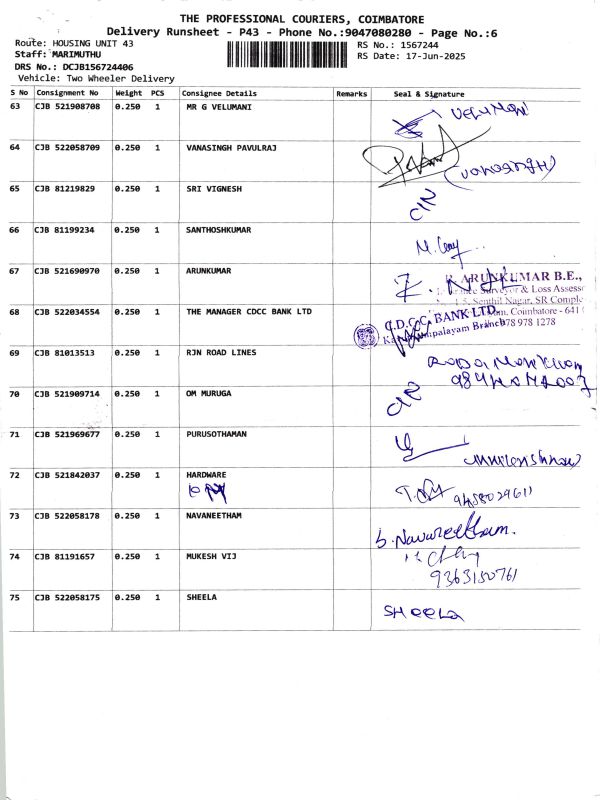 THE PROFESSIONAL COURIERS, COIMBATORE
Delivery Runsheet - P43 - Phone No.:9047080280 - Page No.:6
Route: HOUSING UNIT 43
RS No.: 1567244
Staff: MARIMUTHU
RS Date: 17-Jun-2025
DRS No.: DCJB156724406
Vehicle: Two Wheeler Delivery
S No Consignment No Weight PCS Consignee Details Remarks Seal & Signature
63 CJB 521908708 0.250 1 MR G VELUMANI
64 CJB 522058709 0.250 1 VANASINGH PAVULRAJ
65 CJB 81219829 0.250 1 SRI VIGNESH
66 CJB 81199234 0.250 1 SANTHOSHKUMAR
67 CJB 521690970 0.250 1 ARUNKUMAR
ARUNKUMAR B.E.,
Surveyor & Loss Assess
15, Senthil Nagar, SR Comple
Coimbatore - 641
978 978 1278
68 CJB 522034554 0.250 1 THE MANAGER CDCC BANK LTD
C.D.C.C. BANK LTD.
Branch
69 CJB 81013513 0.250 1 RJN ROAD LINES
70 CJB 521909714 0.250 1 OM MURUGA
71 CJB 521969677 0.250 1 PURUSOTHAMAN
72 CJB 521842037 0.250 1 HARDWARE
9488029611
73 CJB 522058178 0.250 1 NAVANEETHAM
b. Navaneetham.
74 CJB 81191657 0.250 1 MUKESH VIJ
9363150761
75 CJB 522058175 0.250 1 SHEELA
SHEELA